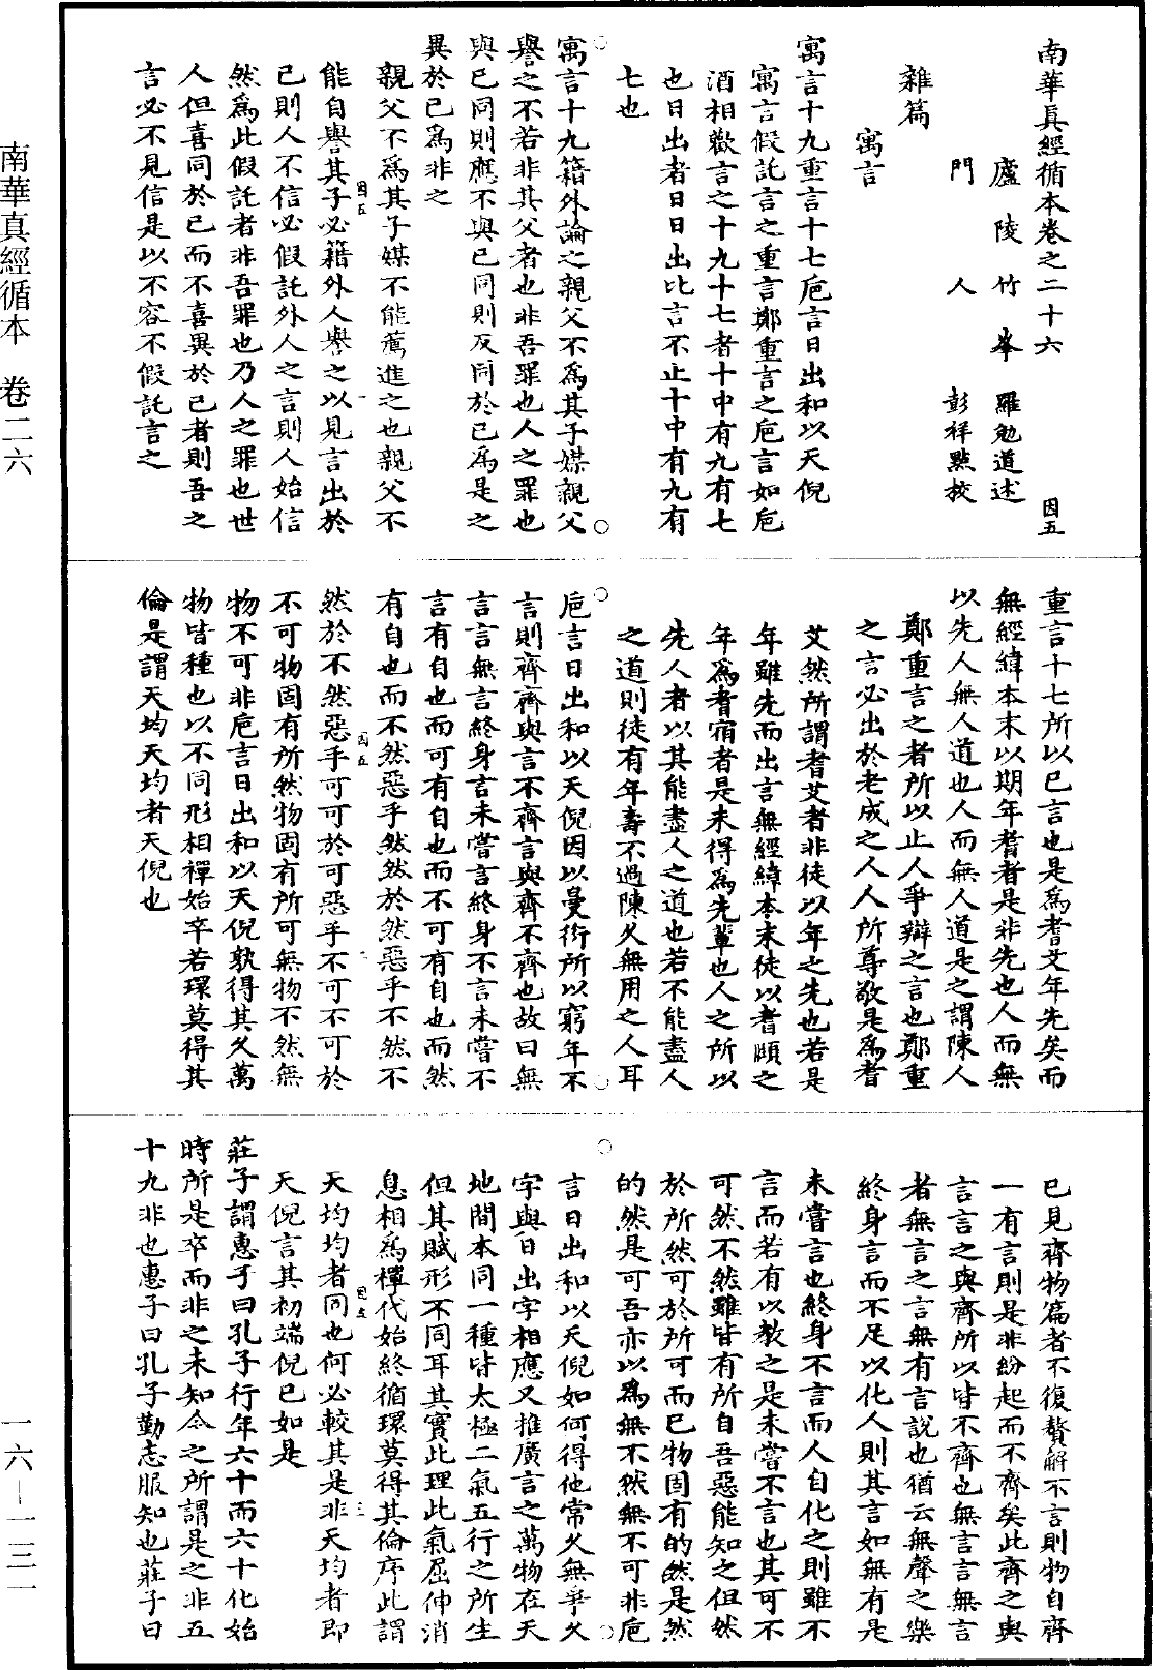 南華真經循本卷之二十六
因五
廬陵竹峯羅勉道述
門人彭祥點校
雜篇
寓言
寓言十九重言十七巵言日出和以天倪
寓言假託言之重言鄭重言之巵言如巵
酒相歡言之十九十七者十中有九有七
也日出者日日出比言不止十中有九有
七也
寓言十九籍外論之親父不爲其子媒親父
譽之不若非其父者也非吾罪也人之罪也
與已同則應不與已同則反同於已爲是之
異於已爲非之
親父不爲其子媒不能薦進之也親父不
能自譽其子必籍外人譽之以見言出於
已則人不信必假託外人之言則人始信
然爲此假託者非吾罪也乃人之罪也世
人但喜同於已而不喜異於已者則吾之
言必不見信是以不容不假託言之
重言十七所以已言也是爲耆艾年先矣而
無經緯本末以期年耆者是非先也人而無
以先人無人道也人而無人道是之謂陳人
鄭重言之者所以止人爭辯之言也鄭重
之言必出於老成之人人所尊敬是爲耆
艾然所謂耆艾者非徒以年之先也若是
年雖先而出言無經緯本末徒以耆頤之
年爲耆宿者是未得爲先輩也人之所以
先人者以其能盡人之道也若不能盡人
之道則徒有年壽不過陳久無用之人耳
巵言日出和以天倪因以曼衍所以窮年不
言則齊齊與言不齊言與齊不齊也故曰無
言言無言終身言未嘗言終身不言未嘗不
言有自也而可有自也而不可有自也而然
有自也而不然惡乎然然於然惡乎不然不
然於不然惡乎可可於可惡乎不可不可於
不可物固有所然物固有所可無物不然無
物不可非巵言日出和以天倪孰得其久萬
物皆種也以不同形相禪始卒若環莫得其
倫是謂天均天均者天倪也
已見齊物篇者不復贅解不言則物自齊
一有言則是非紛起而不齊矣此齊之與
言言之與齊所以皆不齊也無言言無言
者無言之言無有言說也猶云無聲之樂
終身言而不足以化人則其言如無有是
未嘗言也終身不言而人自化之則雖不
言而若有以教之是未嘗不言也其可不
可然不然雖皆有所自吾惡能知之但然
於所然可於所可而已物固有的然是然
的然是可吾亦以爲無不然無不可非巵
言日出和以天倪如何得他常久無爭久
字與日出字相應又推廣言之萬物在天
地間本同一種皆太極二氣五行之所生
但其賦形不同耳其實此理此氣屈伸消
息相爲禪代始終循環莫得其倫序此謂
天均均者同也何必較其是非天均者即
天倪言其初端倪已如是
莊子謂惠子曰孔子行年六十而六十化始
時所是卒而非之未知今之所謂是之非五
十九非也惠子曰孔子勤志服知也莊子曰
南華真經循本　卷二六
一六－一三一